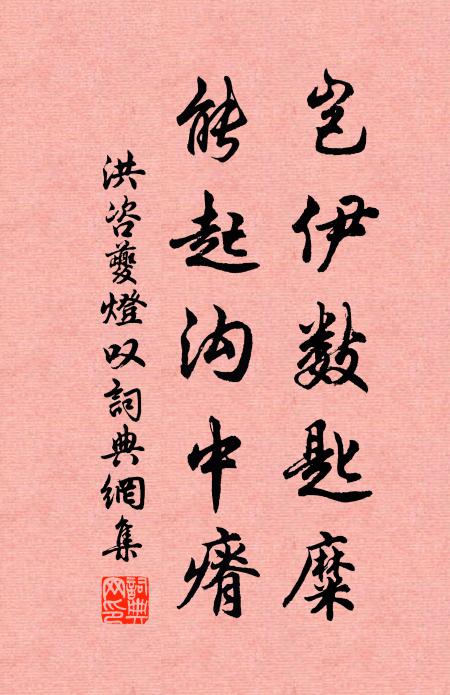 岂伊数匙糜
能起沟中瘠
洪咨夔燈叹詞典網集
詞典
网印